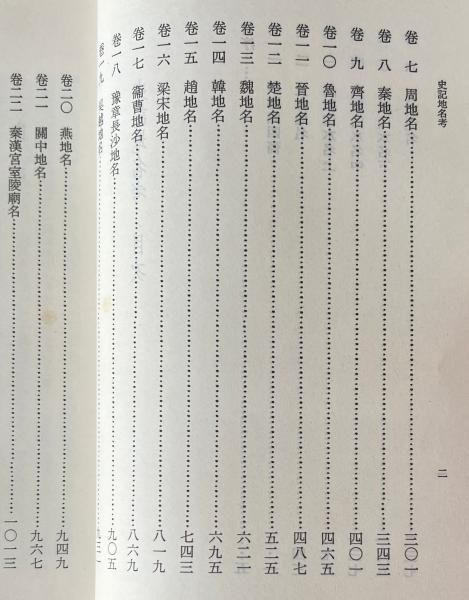 史記地名考
卷七 周地名……三〇一
卷八 秦地名……三四三
卷九 齊地名……四〇一
卷一〇 魯地名……四六五
卷一一 晉地名……四八七
卷一二 楚地名……五二五
卷一三 魏地名……六二一
卷一四 韓地名……六九五
卷一五 趙地名……七四三
卷一六 梁宋地名……八一九
卷一七 衞曹地名……八六九
卷一八 豫章長沙地名……九〇五
卷一九 吳越地名……九三一
卷二〇 燕地名……九四九
卷二一 關中地名……九六七
卷二二 秦漢宮室陵廟名……一〇一三
二